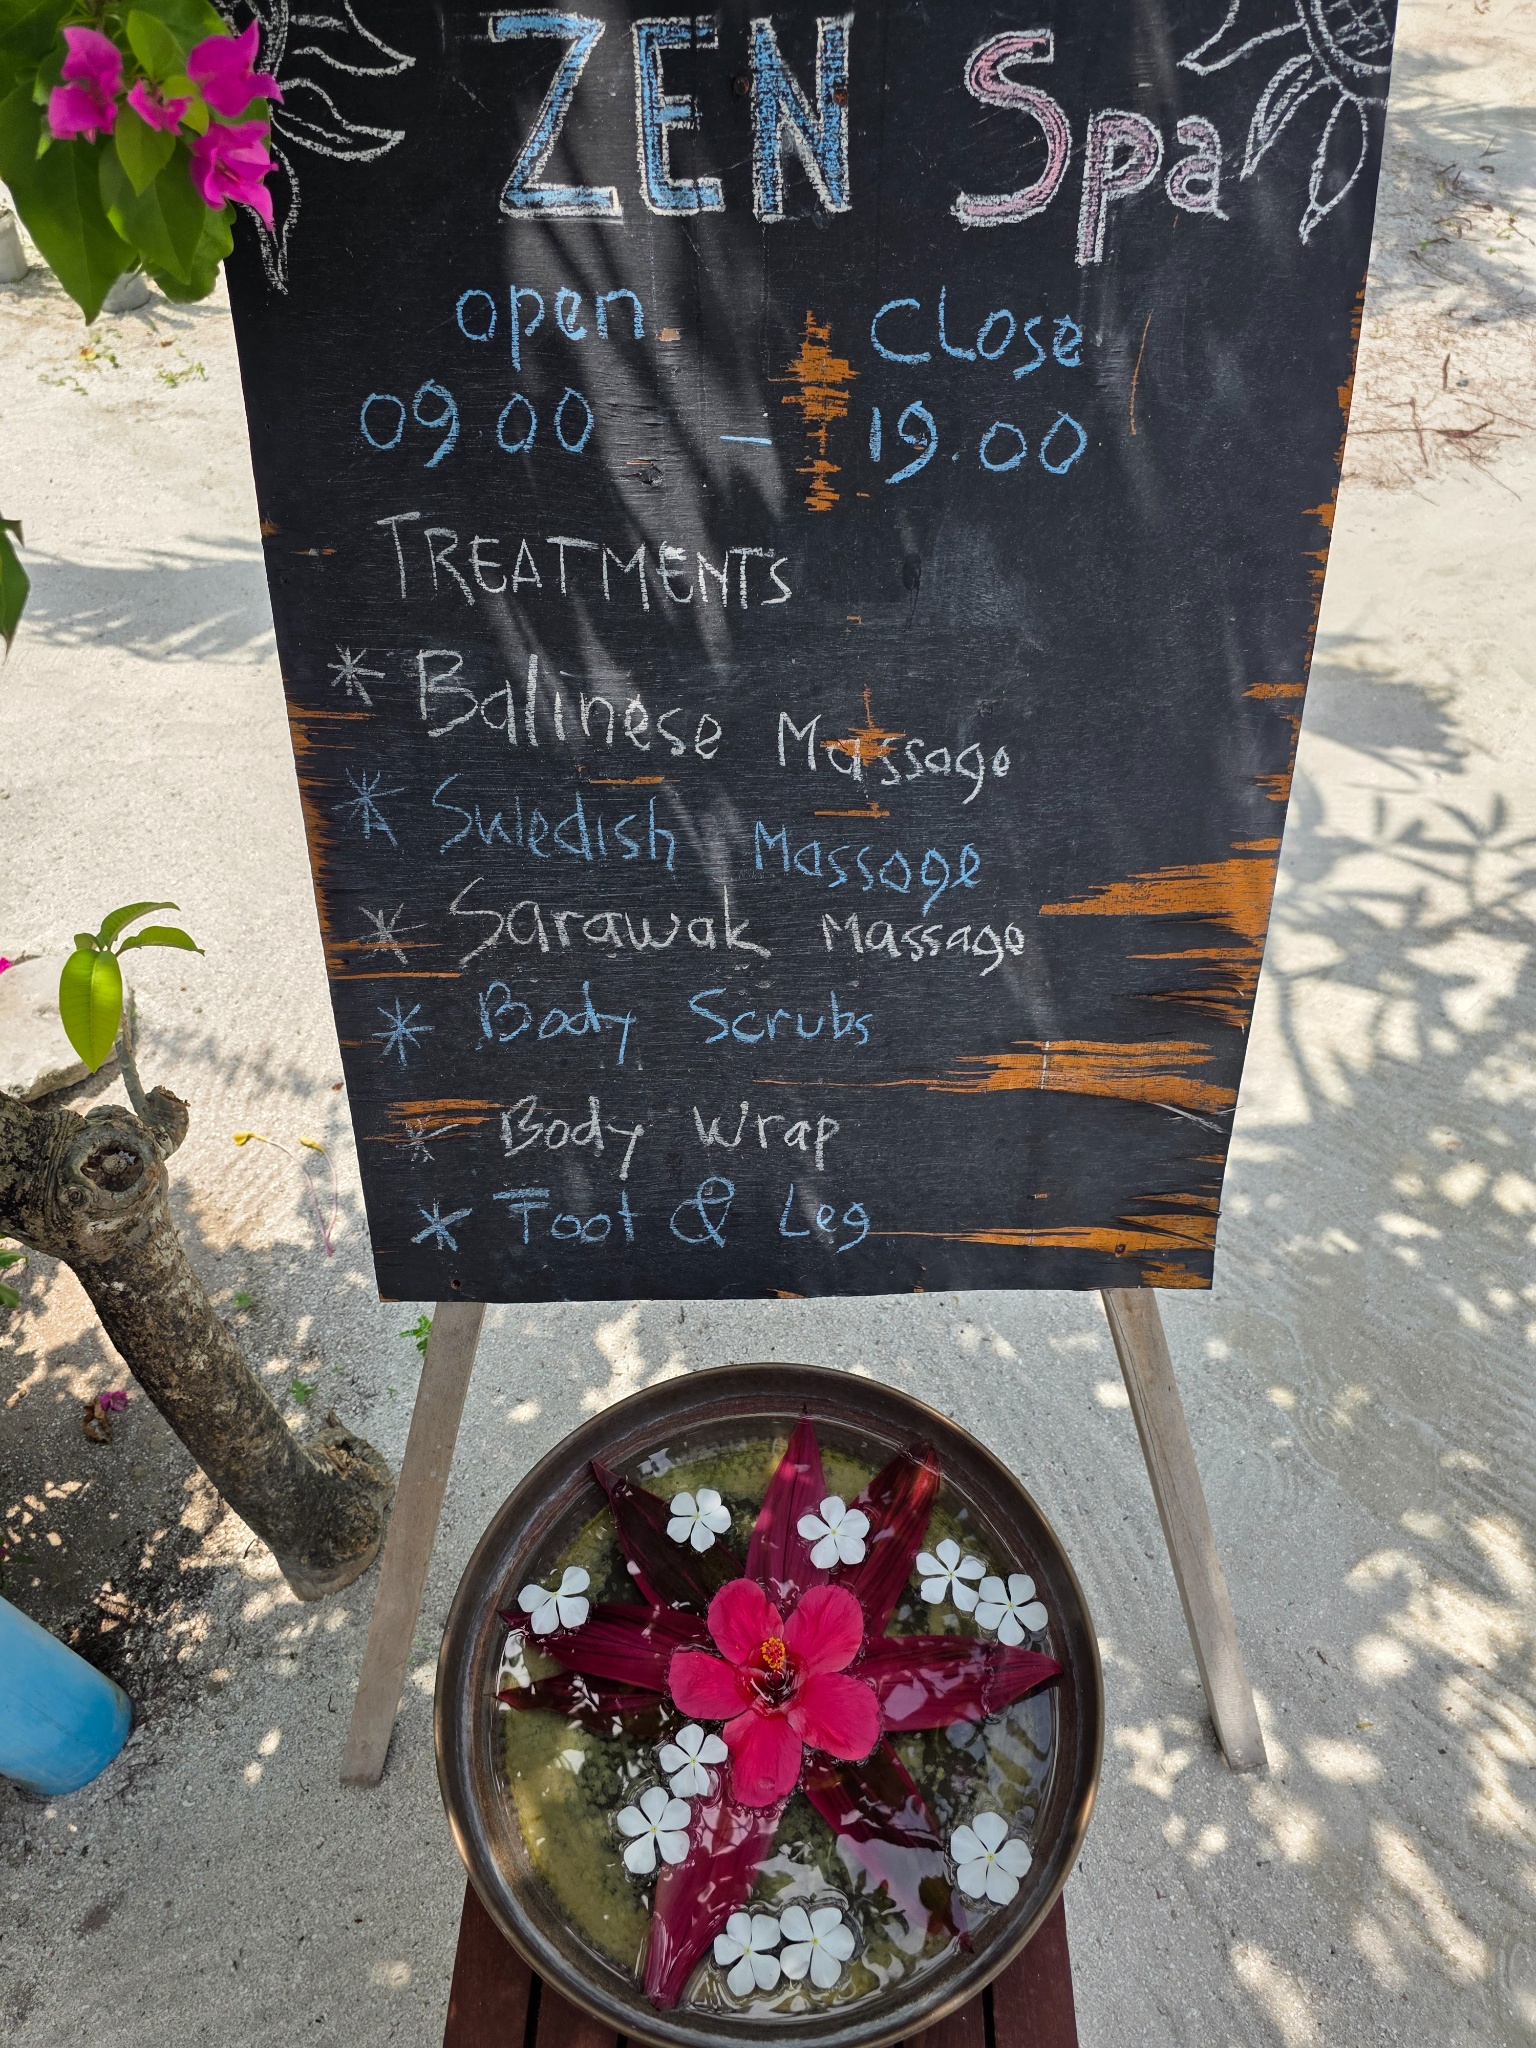 ZEN Spa
open Close
09 00 - 19.00
TREATMENTS
* Balinese Massage
* Swedish Massage
* Sarawak Massage
* Body Scrubs
* Body Wrap
* Foot & Leg